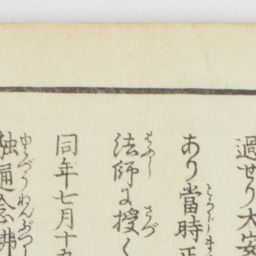 過せり大安
あり當時正
法師に授く
同年七月十五
融通念佛